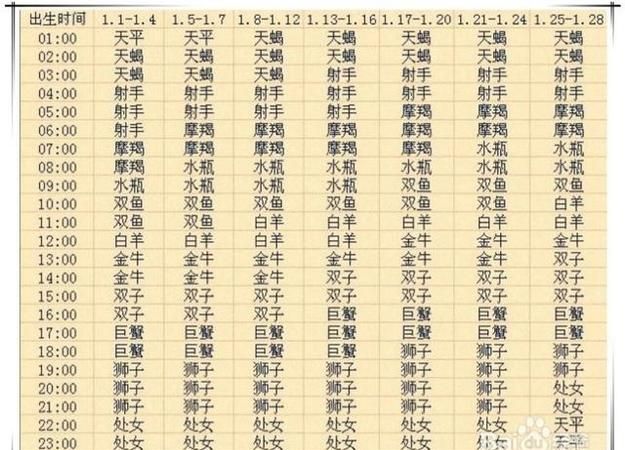 出生时间 1.1-1.4 1.5-1.7 1.8-1.12 1.13-1.16 1.17-1.20 1.21-1.24 1.25-1.28
01:00 天平 天平 天蝎 天蝎 天蝎 天蝎 天蝎
02:00 天蝎 天蝎 天蝎 天蝎 天蝎 天蝎 天蝎
03:00 天蝎 天蝎 天蝎 射手 射手 射手 射手
04:00 射手 射手 射手 射手 射手 射手 射手
05:00 射手 射手 射手 射手 摩羯 摩羯 摩羯
06:00 射手 摩羯 摩羯 摩羯 摩羯 摩羯 摩羯
07:00 摩羯 摩羯 摩羯 摩羯 摩羯 水瓶 水瓶
08:00 摩羯 水瓶 水瓶 水瓶 水瓶 水瓶 水瓶
09:00 水瓶 水瓶 水瓶 水瓶 双鱼 双鱼 双鱼
10:00 双鱼 双鱼 双鱼 双鱼 双鱼 双鱼 白羊
11:00 双鱼 双鱼 白羊 白羊 白羊 白羊 白羊
12:00 白羊 白羊 白羊 白羊 金牛 金牛 金牛
13:00 金牛 金牛 金牛 金牛 金牛 金牛 双子
14:00 金牛 金牛 金牛 双子 双子 双子 双子
15:00 双子 双子 双子 双子 双子 双子 双子
16:00 双子 双子 双子 巨蟹 巨蟹 巨蟹 巨蟹
17:00 巨蟹 巨蟹 巨蟹 巨蟹 巨蟹 巨蟹 巨蟹
18:00 巨蟹 巨蟹 巨蟹 巨蟹 狮子 狮子 狮子
19:00 狮子 狮子 狮子 狮子 狮子 狮子 狮子
20:00 狮子 狮子 狮子 狮子 狮子 狮子 处女
21:00 狮子 狮子 狮子 狮子 狮子 狮子 处女
22:00 处女 处女 处女 处女 处女 处女 天平
23:00 处女 处女 处女 处女 处女 处女 天平